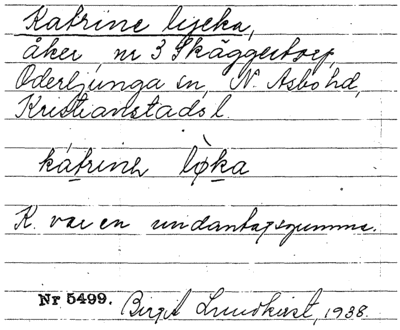 Katrine lycka,
åker, nr 3 Skäggestorp,
Oderljunga sn, N. Åsbo hd,
Kristianstads l.
kátrinə lø̀ka
K. var en undantagsgumma.
Nr 5499. Birgit Lundkvist, 1938.